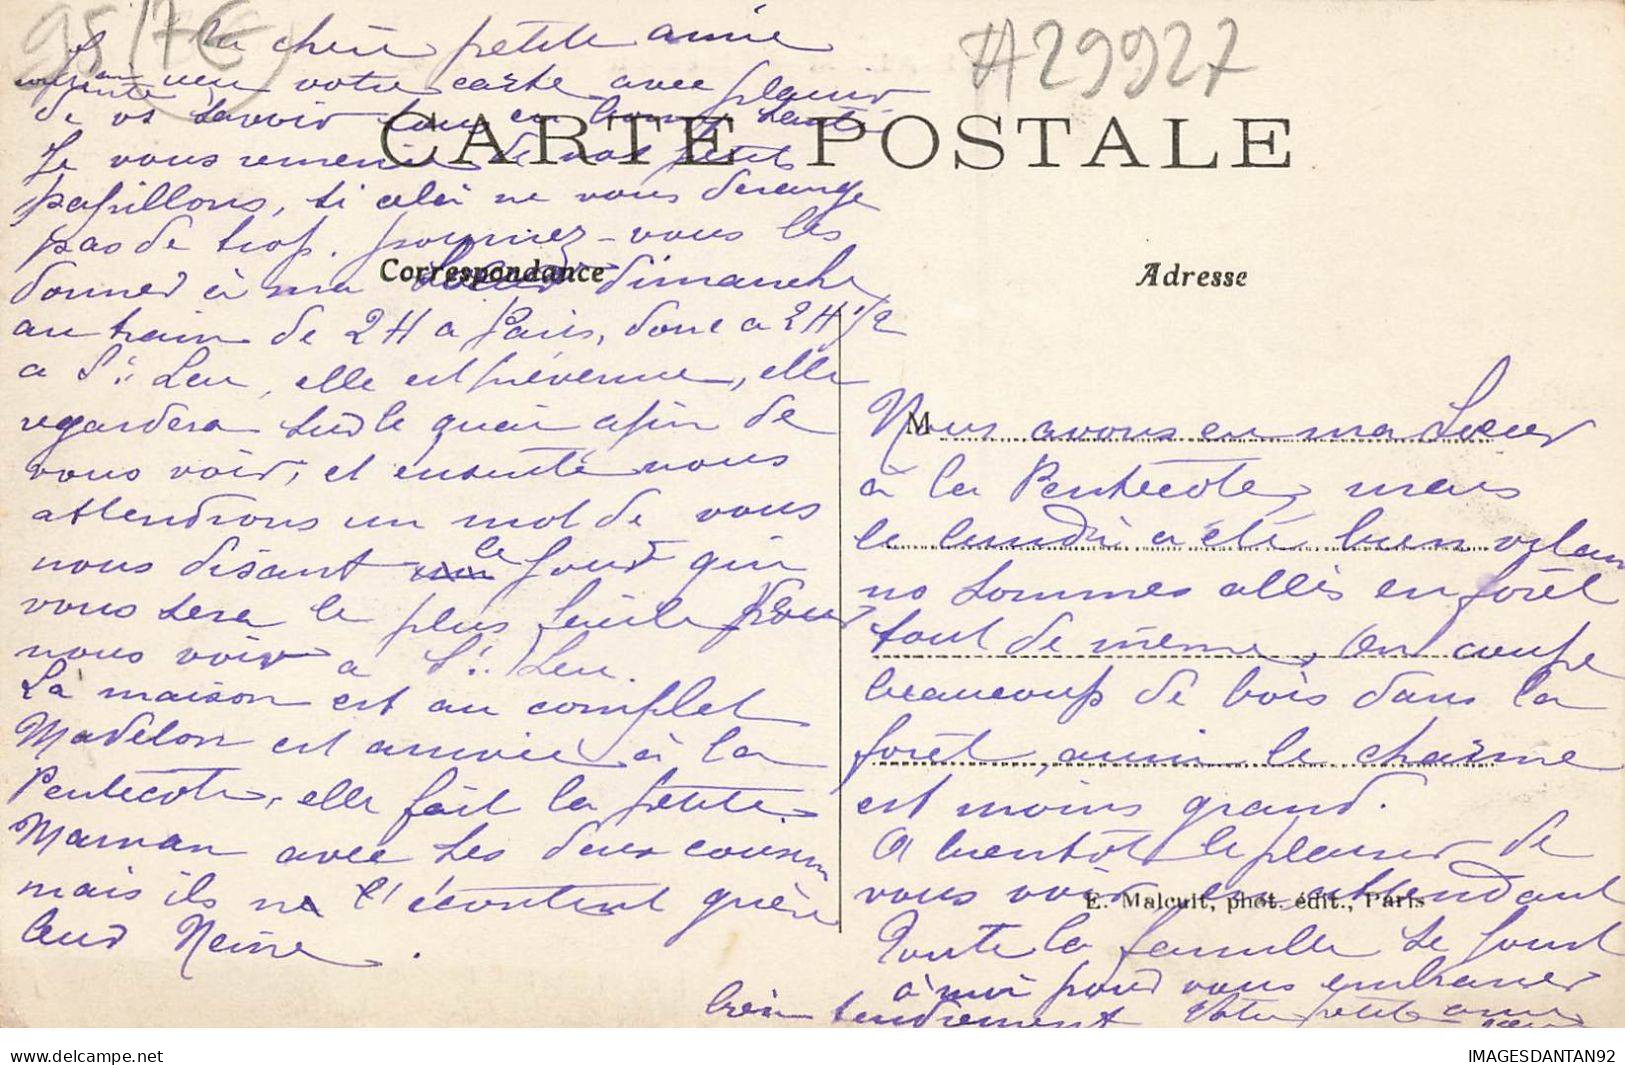 95 / 7€
A29927
Ma chère petite amie
J'ai reçu votre carte avec plaisir
contente
de vs savoir tous en bonne santé
CARTE POSTALE
Je vous remercie de vos petits
papillons, si cela ne vous derange
pas de trop. pourriez-vous les
Correspondance
Adresse
donner à ma Sœur dimanche
au train de 2H a Paris, donc a 2H 1/2
a St Leu, elle est prévenue, elle
regardera sur le quai afin de
vous voir, et ensuite nous
attendrons un mot de vous
nous disant le jour qui
vous sera le plus facile pour
nous voir a St Leu.
La maison est au complet
Madelon est arrivée à la
Pentecote, elle fait la petite
Maman avec ses deux cousins
mais ils ne l'écoutent guère
leur Reine.
M
Nous avons eu ma Sœur
à la Pentecote, mais
le lundi a été bien vilain
ns sommes allés en forêt
tout de même, on coupe
beaucoup de bois dans la
forêt, aussi le charme
est moins grand.
A bientôt le plaisir de
vous voir en attendant
E. Malcuit, phot. édit., Paris
Toute la famille se joint
à moi pour vous embrasser
bien tendrement Votre petite amie
IMAGESDANTAN92